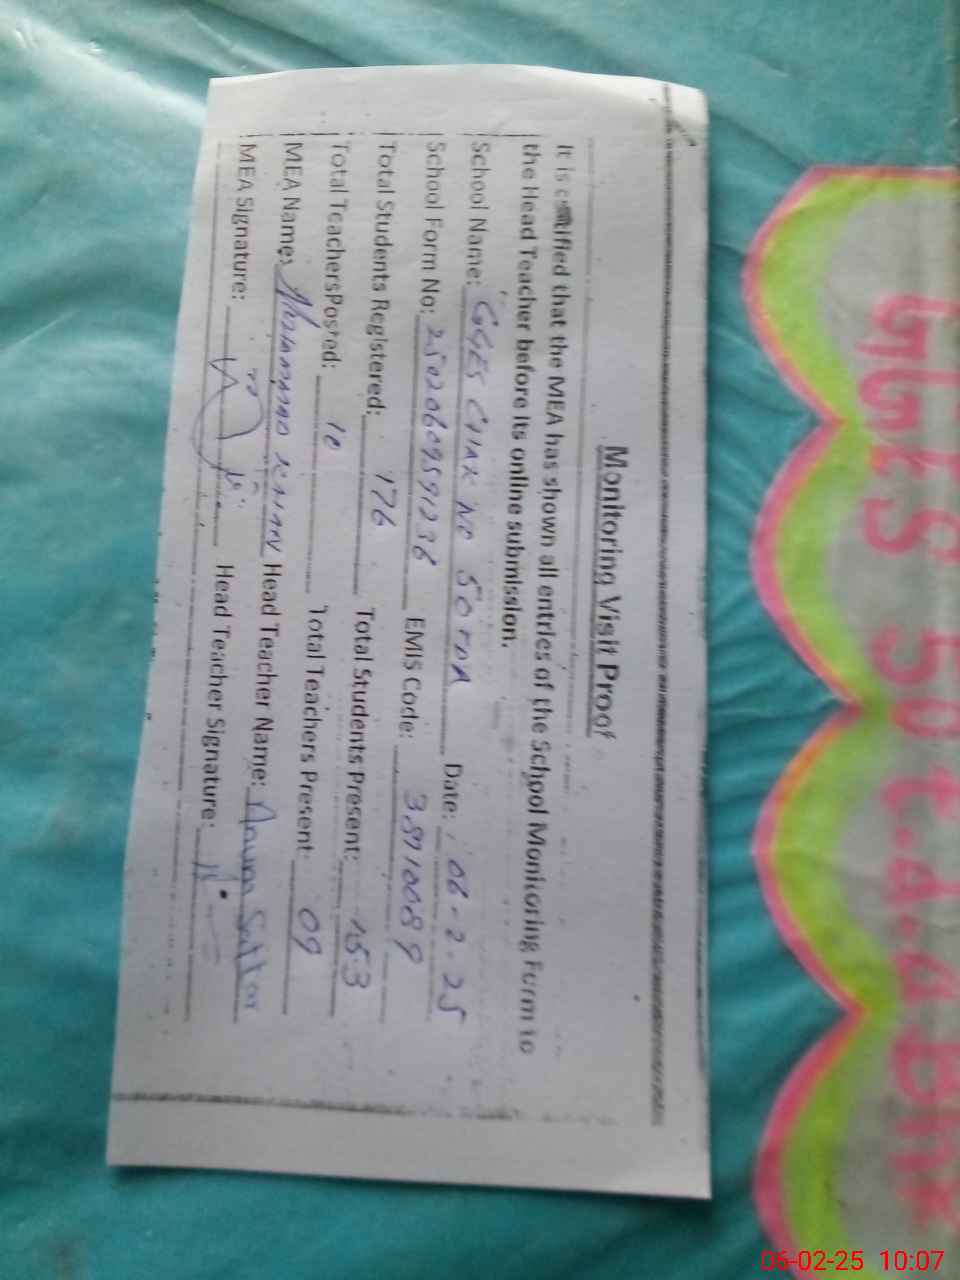 GGES 50t.d.A BHK
Monitoring Visit Proof
It is certified that the MEA has shown all entries of the School Monitoring Form to
the Head Teacher before its online submission.
School Name: GGES CHAK NO 50 TDA Date: 06-2-25
School Form No: 25020609591236 EMIS Code: 38910089
Total Students Registered: 176 Total Students Present: 153
Total TeachersPosted: 10 Total Teachers Present: 09
MEA Name: Muhammad Khan Head Teacher Name: Anum Sattar
MEA Signature: Head Teacher Signature:
06-02-25 10:07